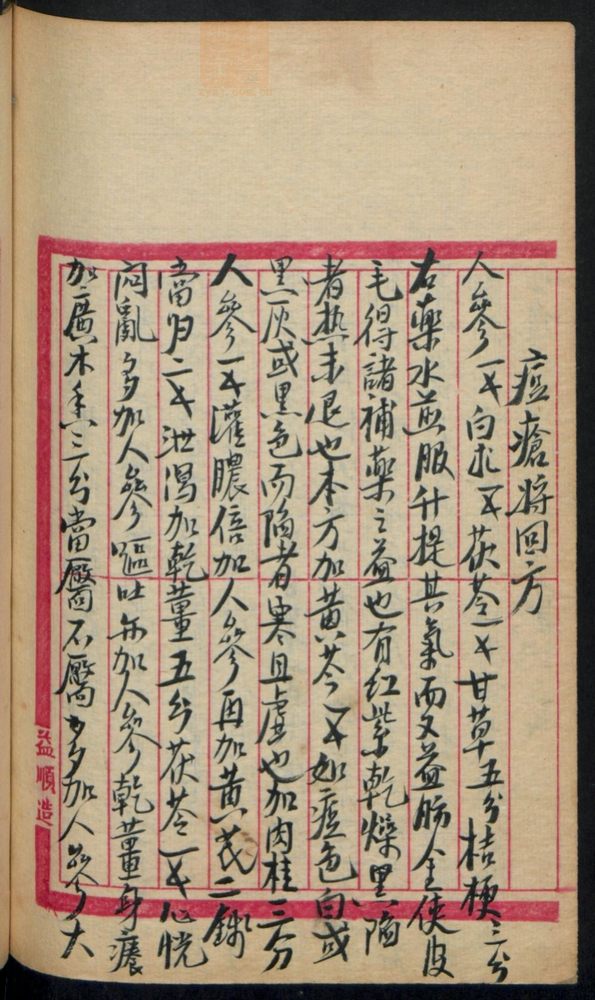 痘瘡将回方
人參一錢白朮一錢茯苓一錢甘草五分桔梗三分
右藥水煎服升提其氣而又益肺金使皮
毛得諸補藥之益也有红紫乾燥黑陷
者热未退也本方加黄芩一錢如痘色白或
黑灰或黑色而陷者寒且虛也加肉桂三分
人參一錢灌膿倍加人參再加黄芪二錢
當归二錢泄瀉加乾薑五分茯苓一錢心恍
闷亂多加人參嘔吐亦加人參乾薑身癢
加廣木香三分當靨不靨多加人參大
益順造